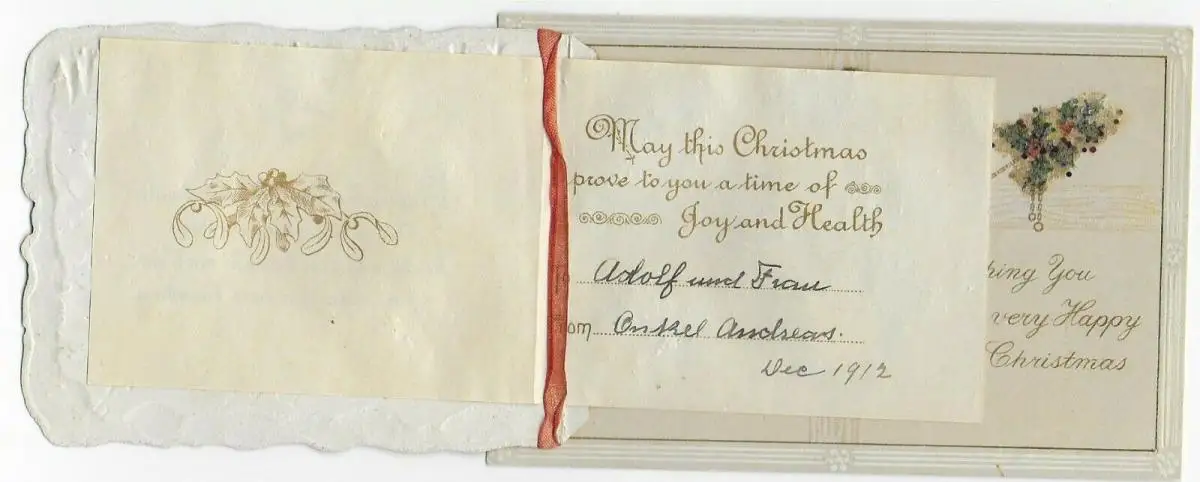 May this Christmas
prove to you a time of
Joy and Health
Adolf und Frau
Onkel Andreas.
Dec 1912
You
very Happy
Christmas